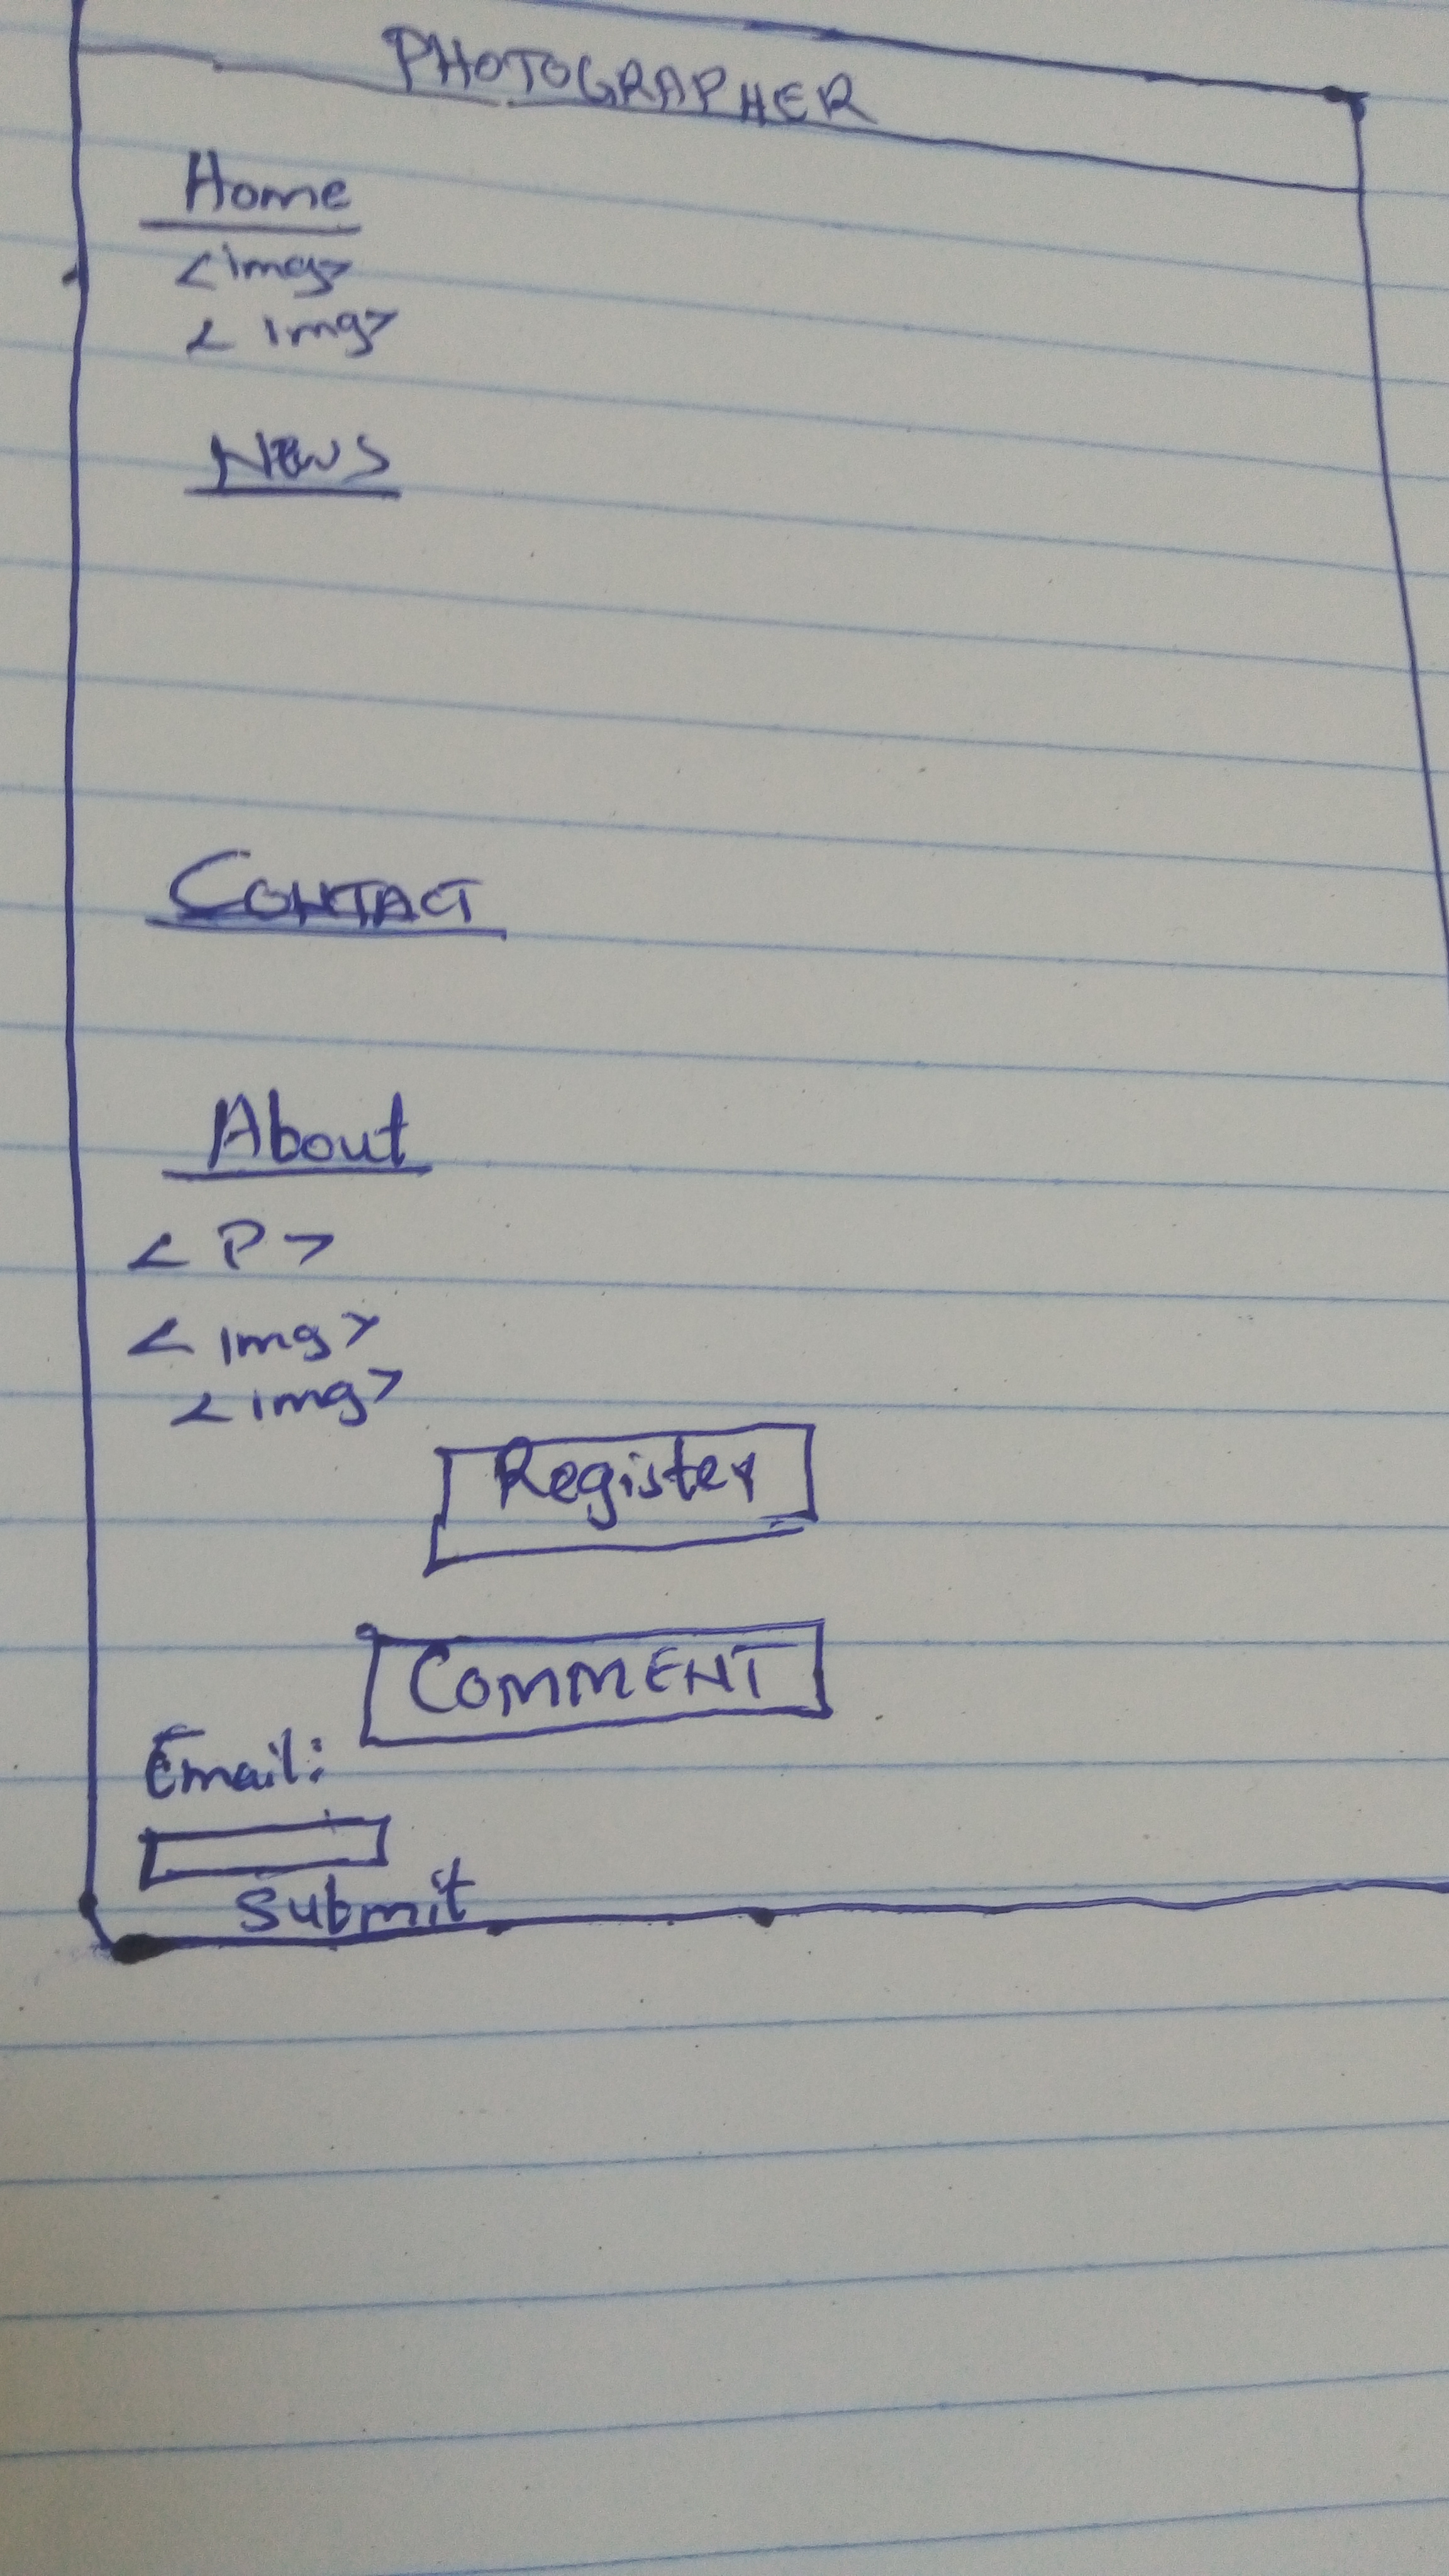 PHOTOGRAPHER
Home
<img>
<img>
News
CONTACT
About
<P>
<img>
<img>
Register
COMMENT
Email:
Submit